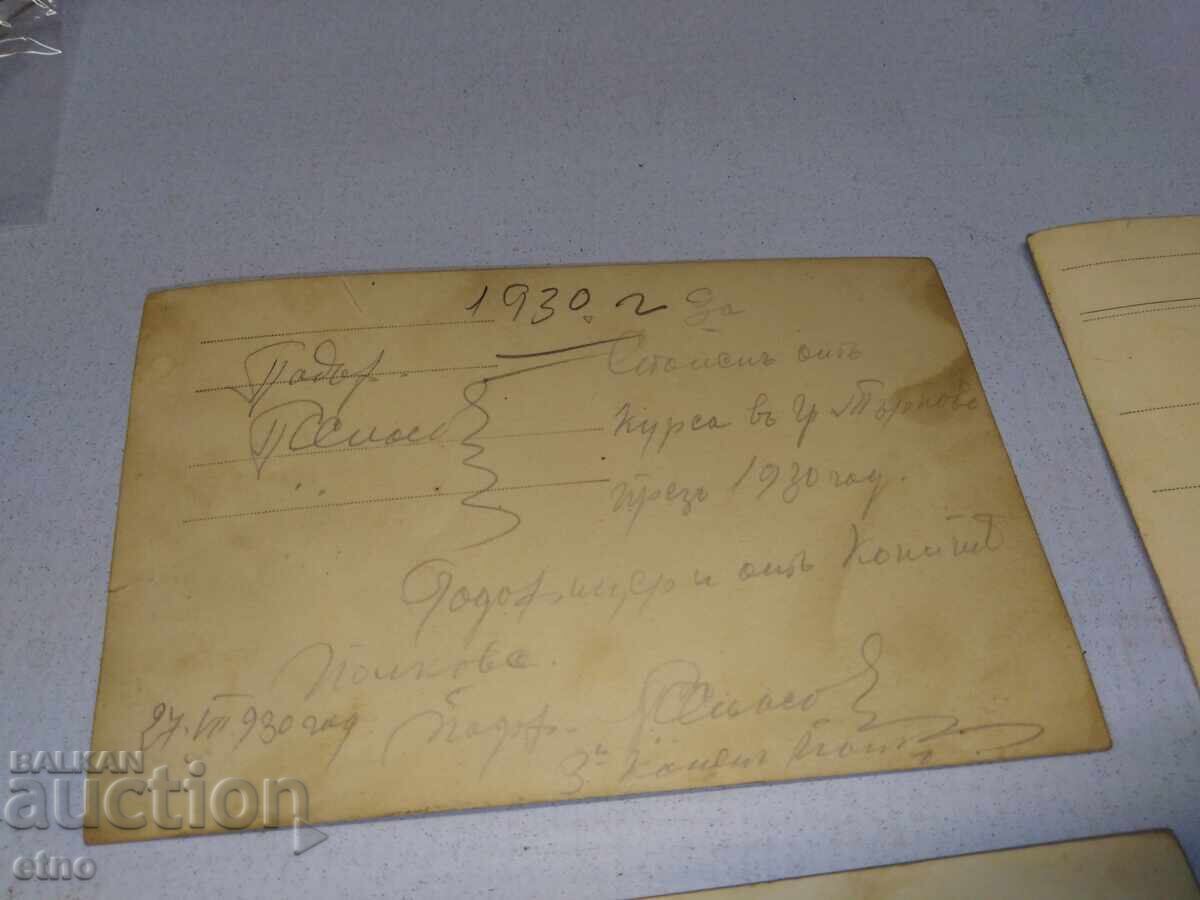 1930. г За
Подоф.
Спасов
Споменъ отъ
Курса въ гр. Търново
презъ 1930 год.
Подофицери отъ Конитѣ
Полкове.
27. III. 930 год. Подоф. Спасов
3й Коненъ
BALKAN
auction
etno